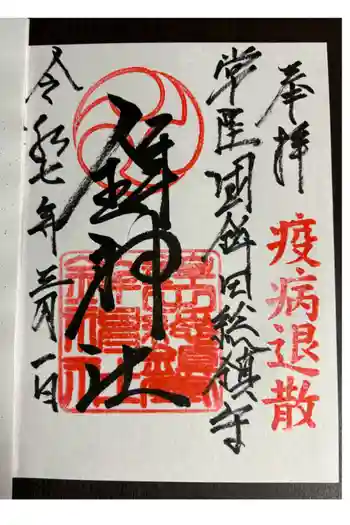 奉拝
疫病退散
常陸國鉾田総鎮守
鉾神社
令和七年三月一日